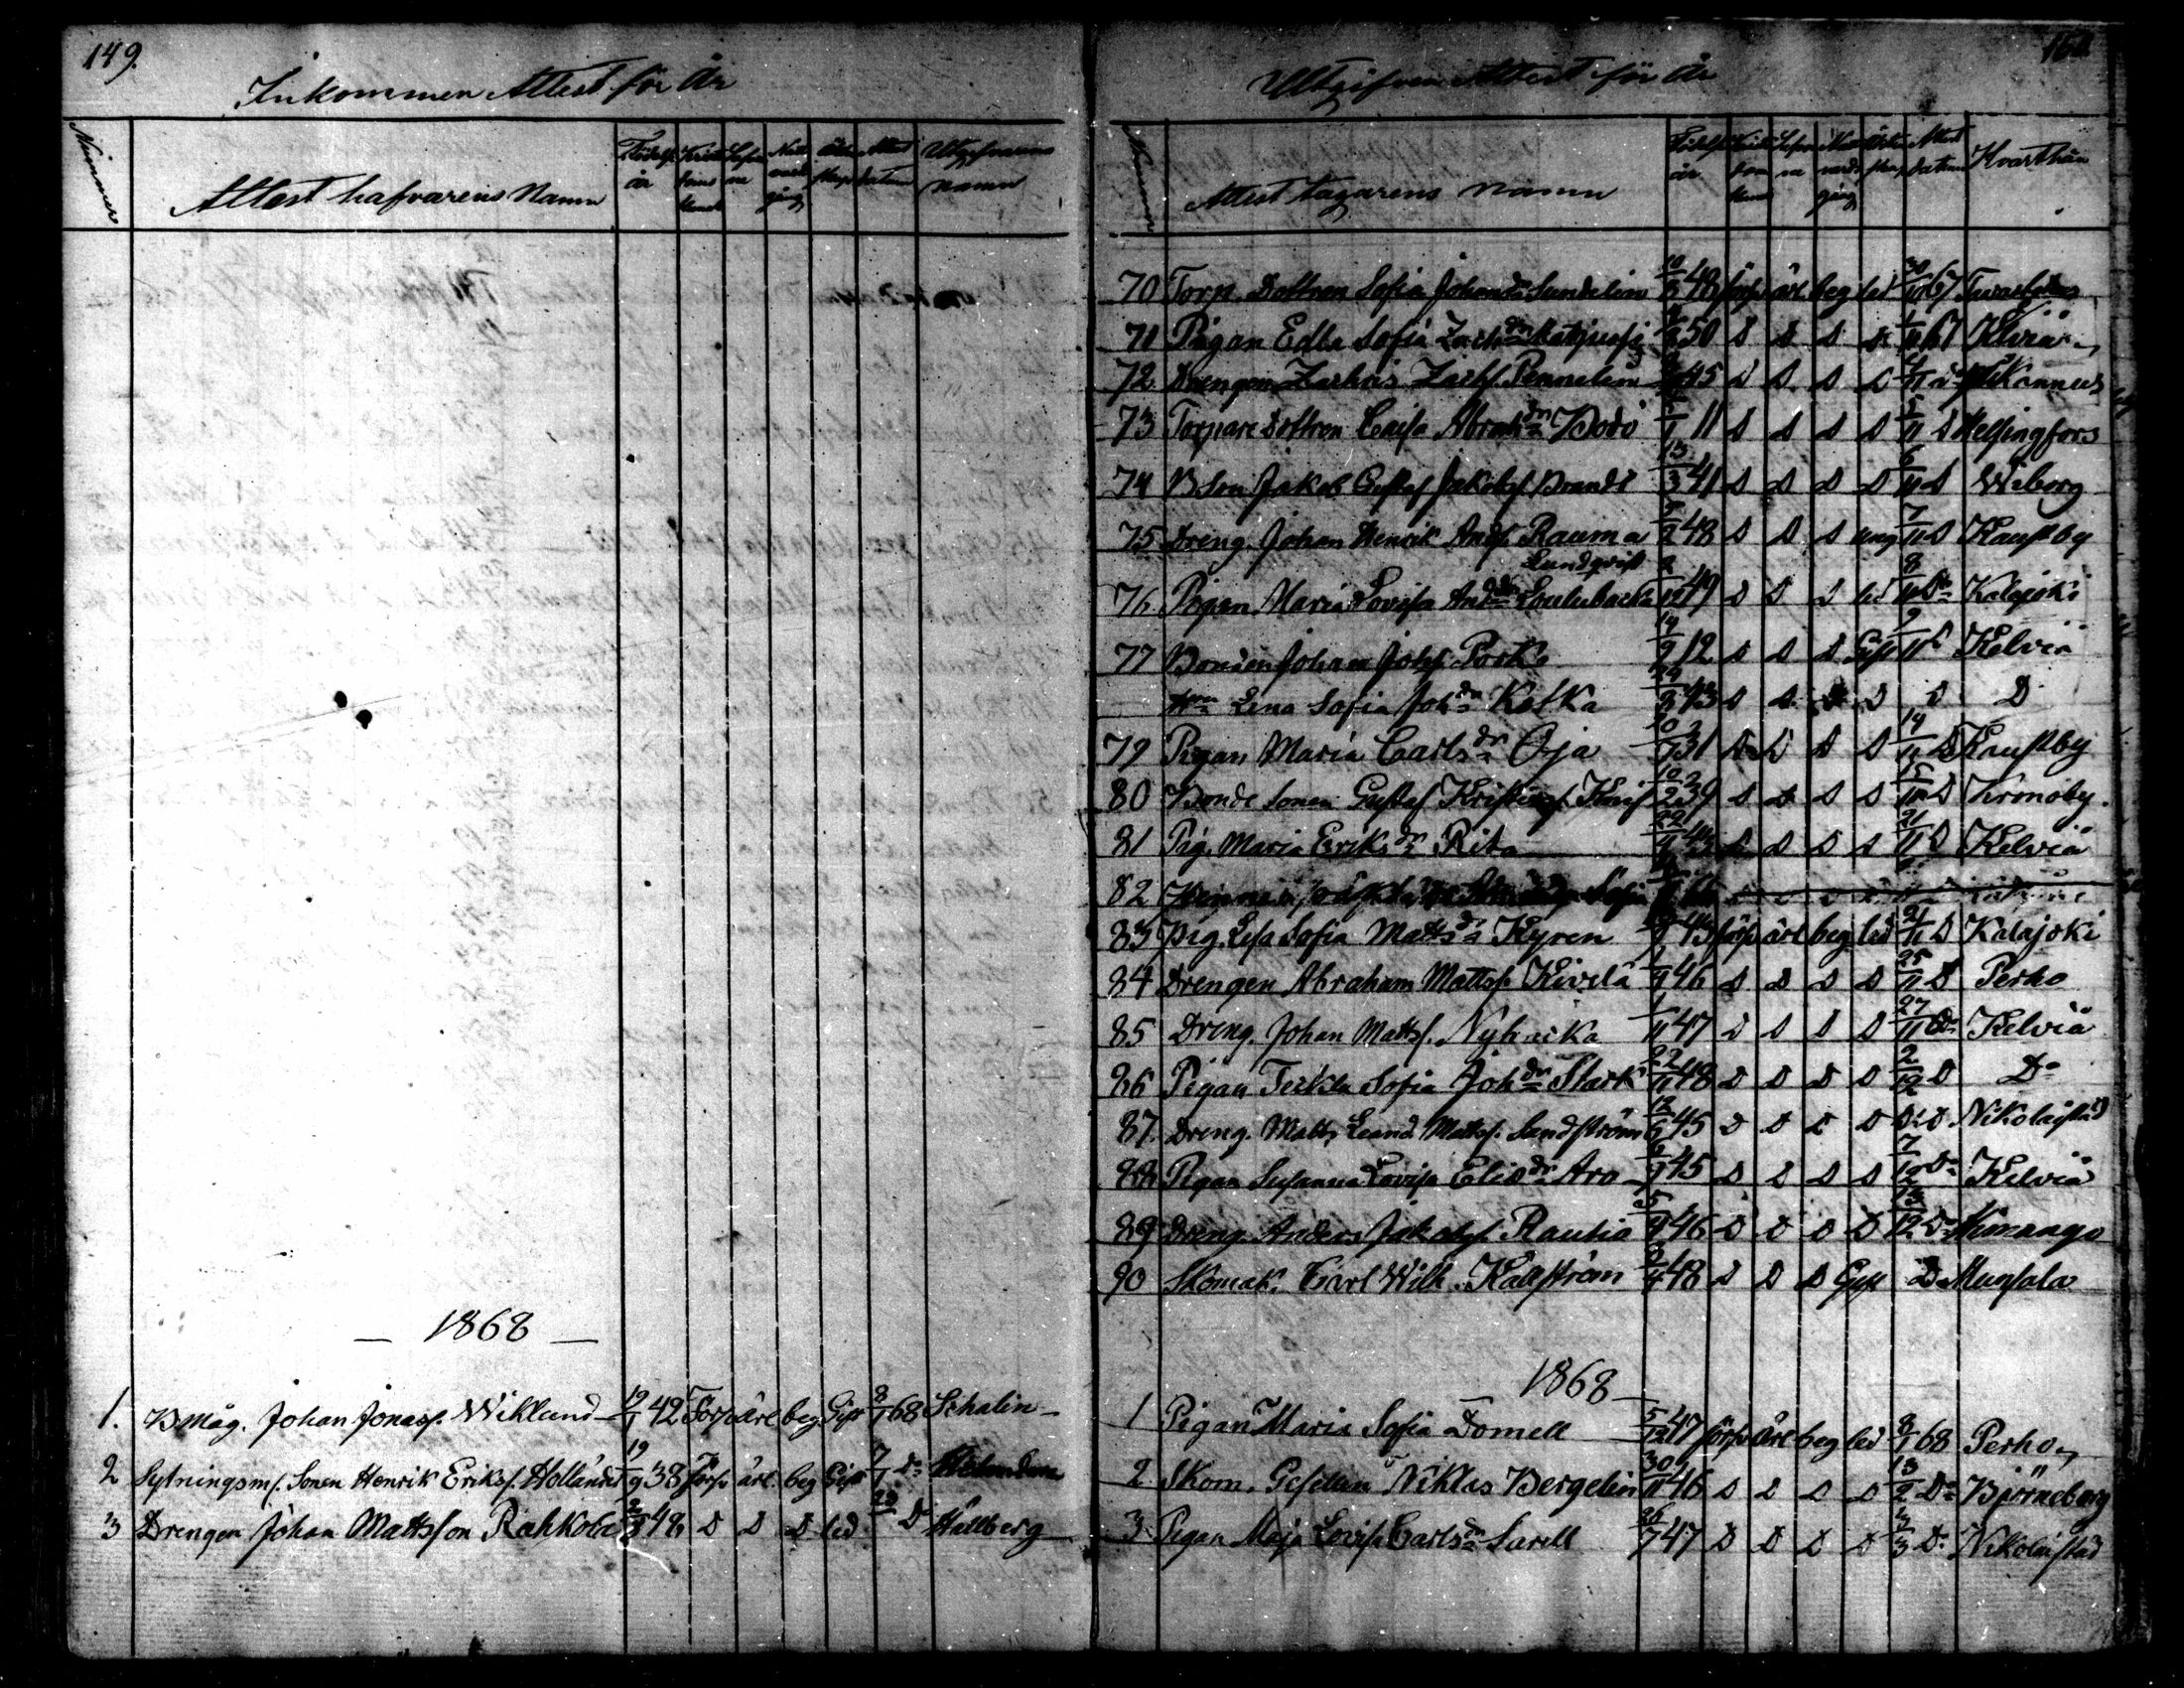 149.
Inkommen Attest för år
Nummer
Attest hafvarens Namn
Födelse år
Kristendoms kunsk
Lefverne
Nattvards gång
Ächtenskap
Attest datum
Utgifvarens namn
— 1868 —
1. B måg. Johan Jonass. Wiklund 19/1 42 Förs ärl beg Gift 8/1 68 Schalin
2 Sytningsm. Sonen Henrik Erikss. Hollända 19/9 38 förs ärl. beg Gift 7/1 Do
3 Drengen Johan Mattsson Rahkola 2/8 48 D D D led D Hällberg
Utgifven Attest för år
Nummer
Attest tagarens namn
Födelse år
Attest datum
Hvarthän
70 Torp. Dottren Sofia Johansdr Sundelin 48 förs ärl beg led 30/10 67
71 Pigan Edla Sofia Zachdr 50 D D D D 1/11 67 Kelviä
72 Drengen Zachris Zachs. Pennelin 45 D D D D 4/11 D
73 Torpare Dottren Caisa Abrahdr Bodö 1/1 11 D D D D 5/11 D Helsingfors
74 B Son Jakob Gustaf Jakobs. Brandt 13/3 41 D D D D 6/11 D Wiborg
75 Dreng. Johan Henrik Ands. Rauma 5/2 48 D D D ung 7/11 D Kaustby
Lundqvist
76 Pigan Maria Lovisa Anddr Loulubacka 2/12 49 D D D led 8/11 Do Kalajoki
77 Bonden Johan Johss. Porko 14/9 12 D D D Gift 9/11 D Kelviä
Hn Lena Sofia Johdr Kalka D D D D D D
79 Pigan Maria Carlsdr Oja 20/7 31 D D D D 14/11 D Kaustby
80 Bonde Sonen Gustaf 10/2 39 D D D D 15/11 D Kronoby.
81 Pig. Maria Eriksdr Rita D D D D 21/11 D Kelviä
82
83 Pig. Lisa Sofia Mattsdr Kyren 43 förs ärl beg led 21/11 D Kalajoki
84 Drengen Abraham Mattss. Kivelä 1/9 46 D D D D 25/11 D Perho
85 Dreng. Johan Mattss. Nyhacka 1/11 47 D D D D 27/11 Do Kelviä
86 Pigan Tekla Sofia Johdr Stark 22/11 48 D D D D 2/12 D Do
87. Dreng. Matts Leand. Mattss. Sandström 12/6 45 D D D D D D. Nikolaistad
88 Pigan Susanna Lovisa Eliesdr Aro 45 D D D D 7/12 Do Kelviä
89 Dreng. Anders Jakobss. Rautio 5/4 46 D D D D 13/12 Do Himango
90 Skomak. Carl Wilh. Källström 2/4 48 D D D Gift Do Munsala
1868
1 Pigan Maria Sofia Domell 5/12 47 förs ärl beg led 8/1 68 Perho
2 Skom. Gesellen Niklas Bergelin 30/11 46 D D D D 13/2 Do Björneborg
3 Pigan Maja Lovisa Carlsdr Sarell 26/7 47 D D D D 4/3 Do Nikolaistad